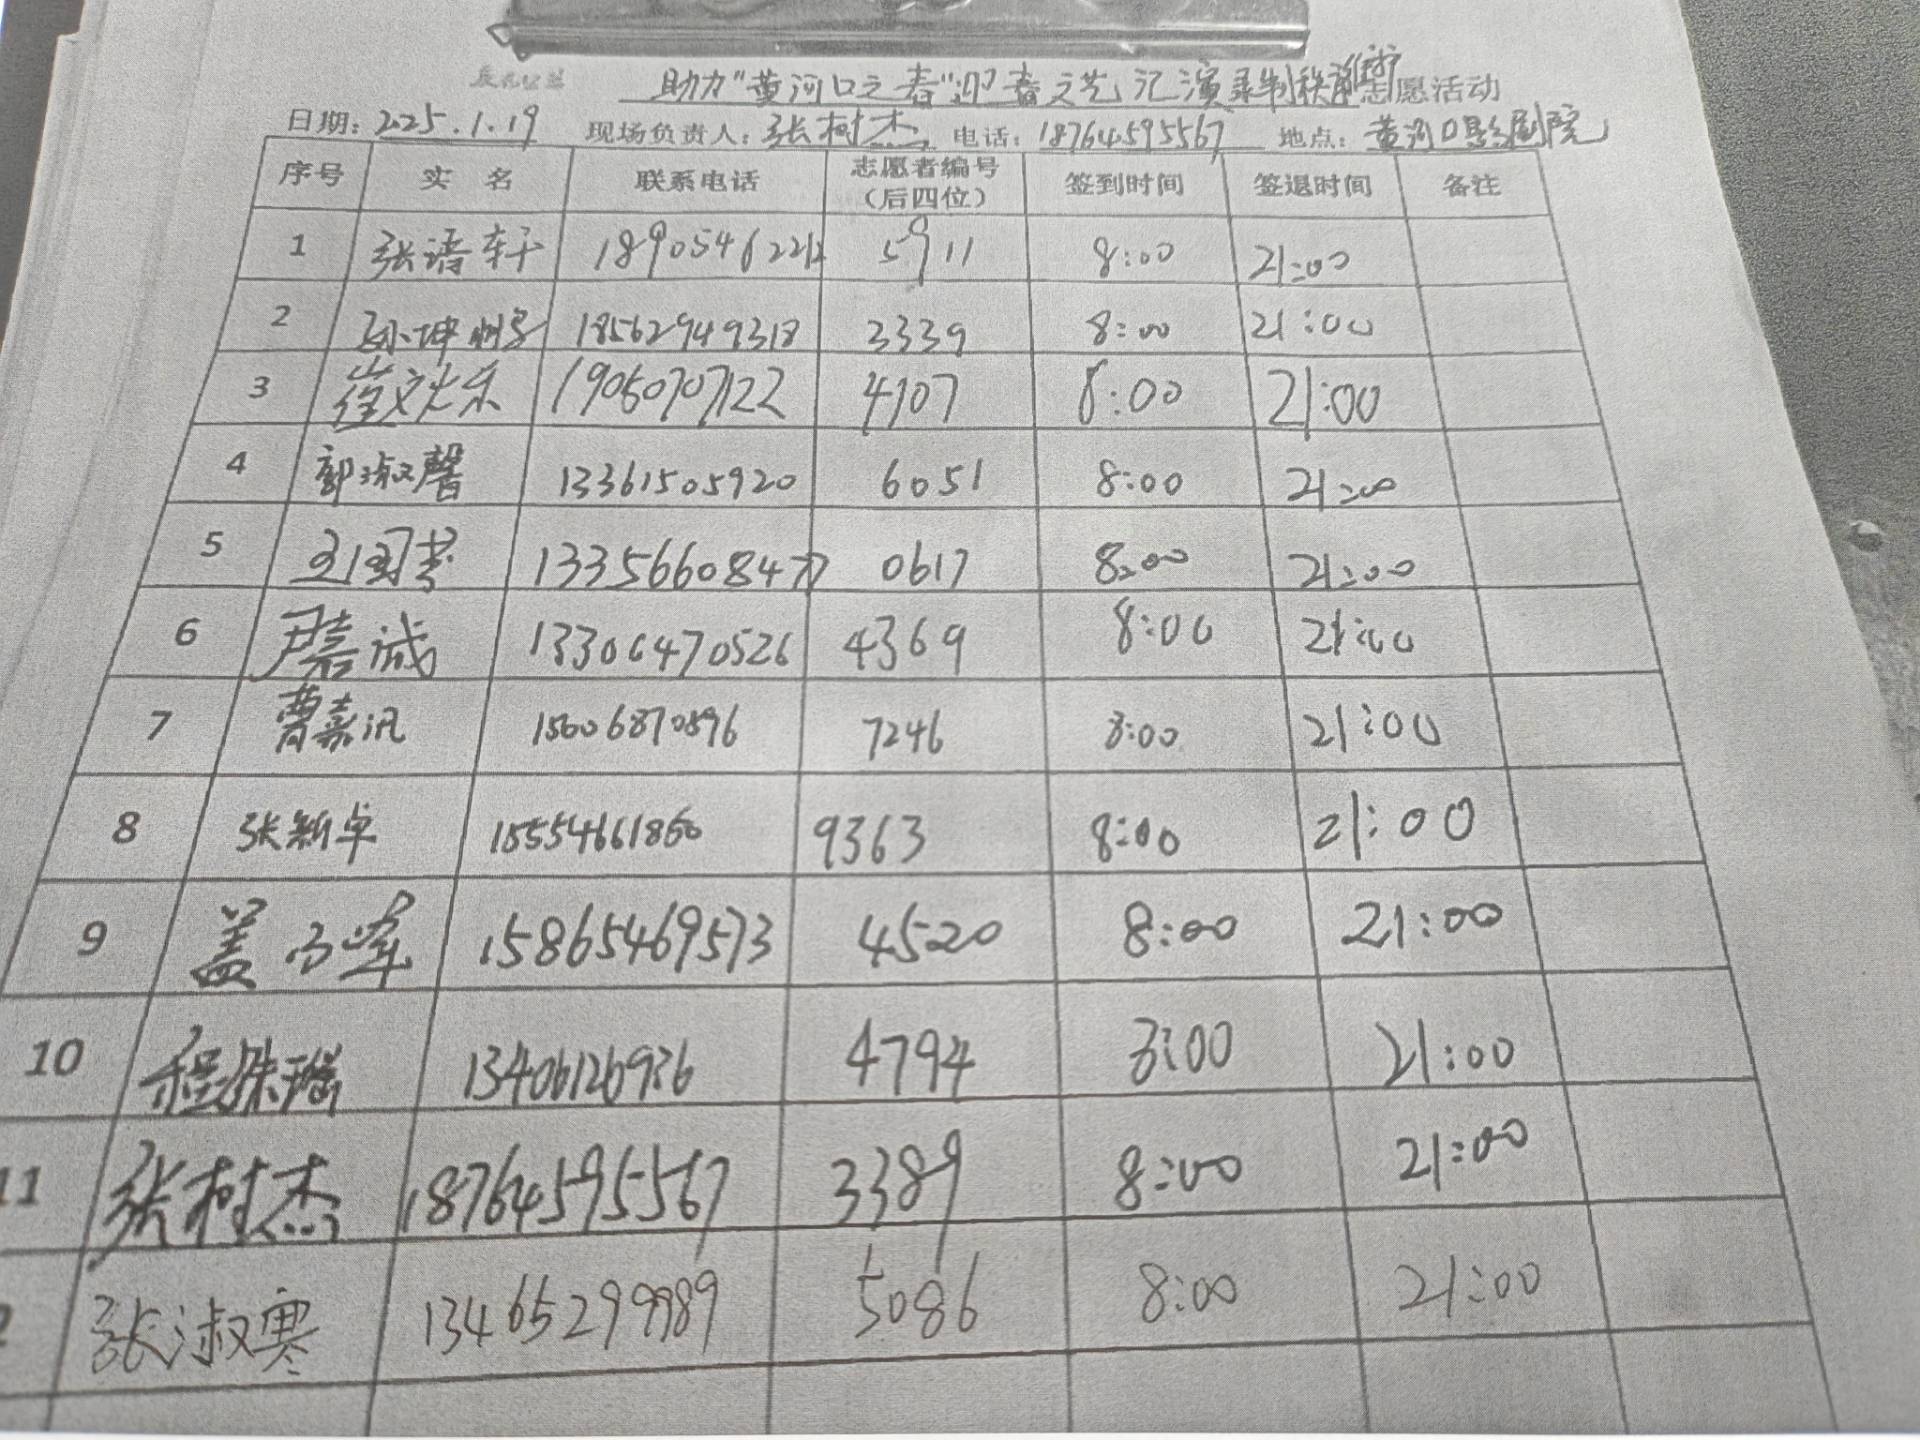 助力"黄河口之春"迎春文艺汇演录制秩序维护志愿活动
日期：2025.1.19 现场负责人：张树杰 电话：18764595567 地点：黄河口影剧院
序号 实 名 联系电话 志愿者编号（后四位） 签到时间 签退时间 备注
1 张语轩 18905462212 5911 8:00 21:00
2 孙坤 18562949318 3339 8:00 21:00
3 崔文 19050707122 4107 8:00 21:00
4 郭淑馨 13361505920 6051 8:00 21:00
5 13356608477 0617 8:00 21:00
6 尹嘉诚 13306470526 4369 8:00 21:00
7 曹嘉汛 15606870896 7246 8:00 21:00
8 张新卓 15554661860 9363 8:00 21:00
9 盖 峰 15865469573 4520 8:00 21:00
10 程姝瑶 13406126936 4794 8:00 21:00
11 张树杰 18764595567 3389 8:00 21:00
张淑寒 13465299989 5086 8:00 21:00